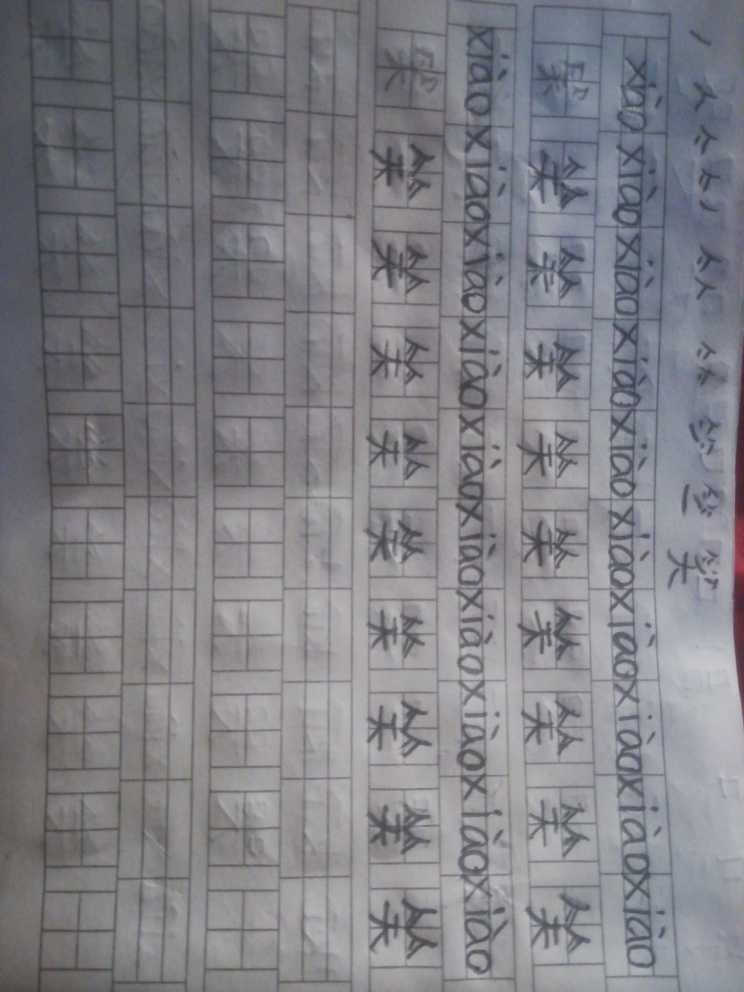 笑
xiào xiào xiào xiào xiào xiào xiào xiào xiào xiào
笑 笑 笑 笑 笑 笑 笑 笑 笑 笑
xiào xiào xiào xiào xiào xiào xiào xiào xiào xiào
笑 笑 笑 笑 笑 笑 笑 笑 笑 笑